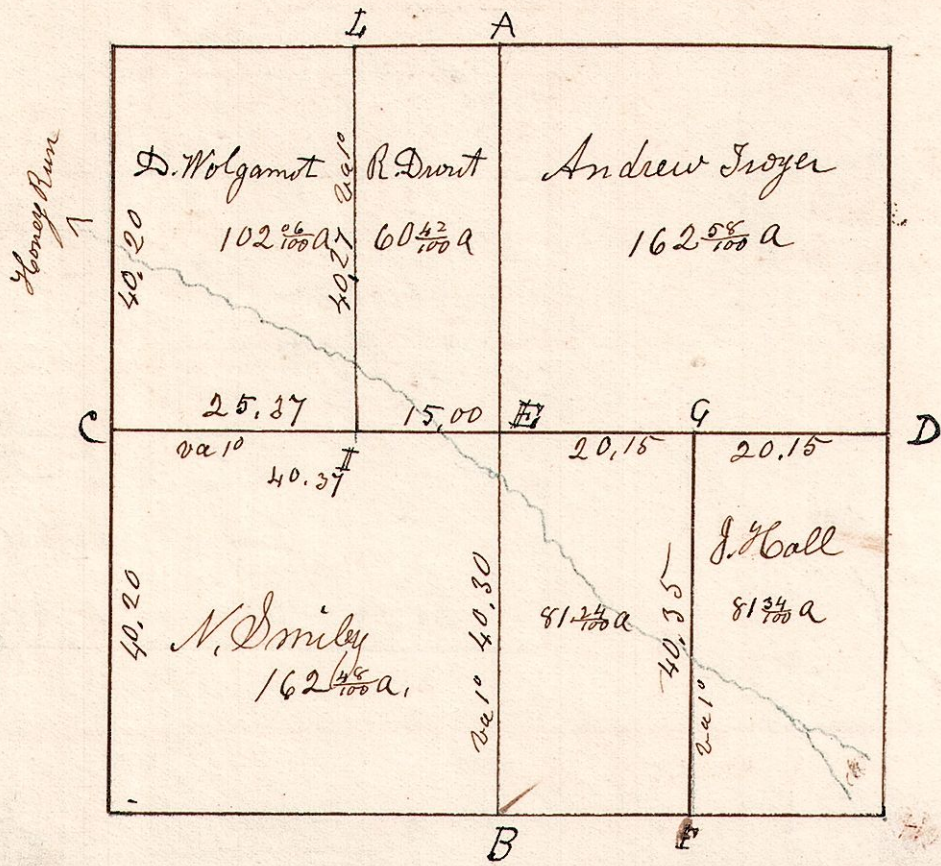 L A
Honey Run
D. Wolgamot
102 06/100 a
40,20
va 1°
40,27
R. Drout
60 42/100 a
Andrew Troyer
162 58/100 a
C
25,37
15,00
E
G
D
va 1°
I
40.37
20,15
20,15
40,20
N. Smiley
162 48/100 a.
va 1° 40,30
81 24/100 a
40,35
va 1°
J. Hall
81 34/100 a
B
F